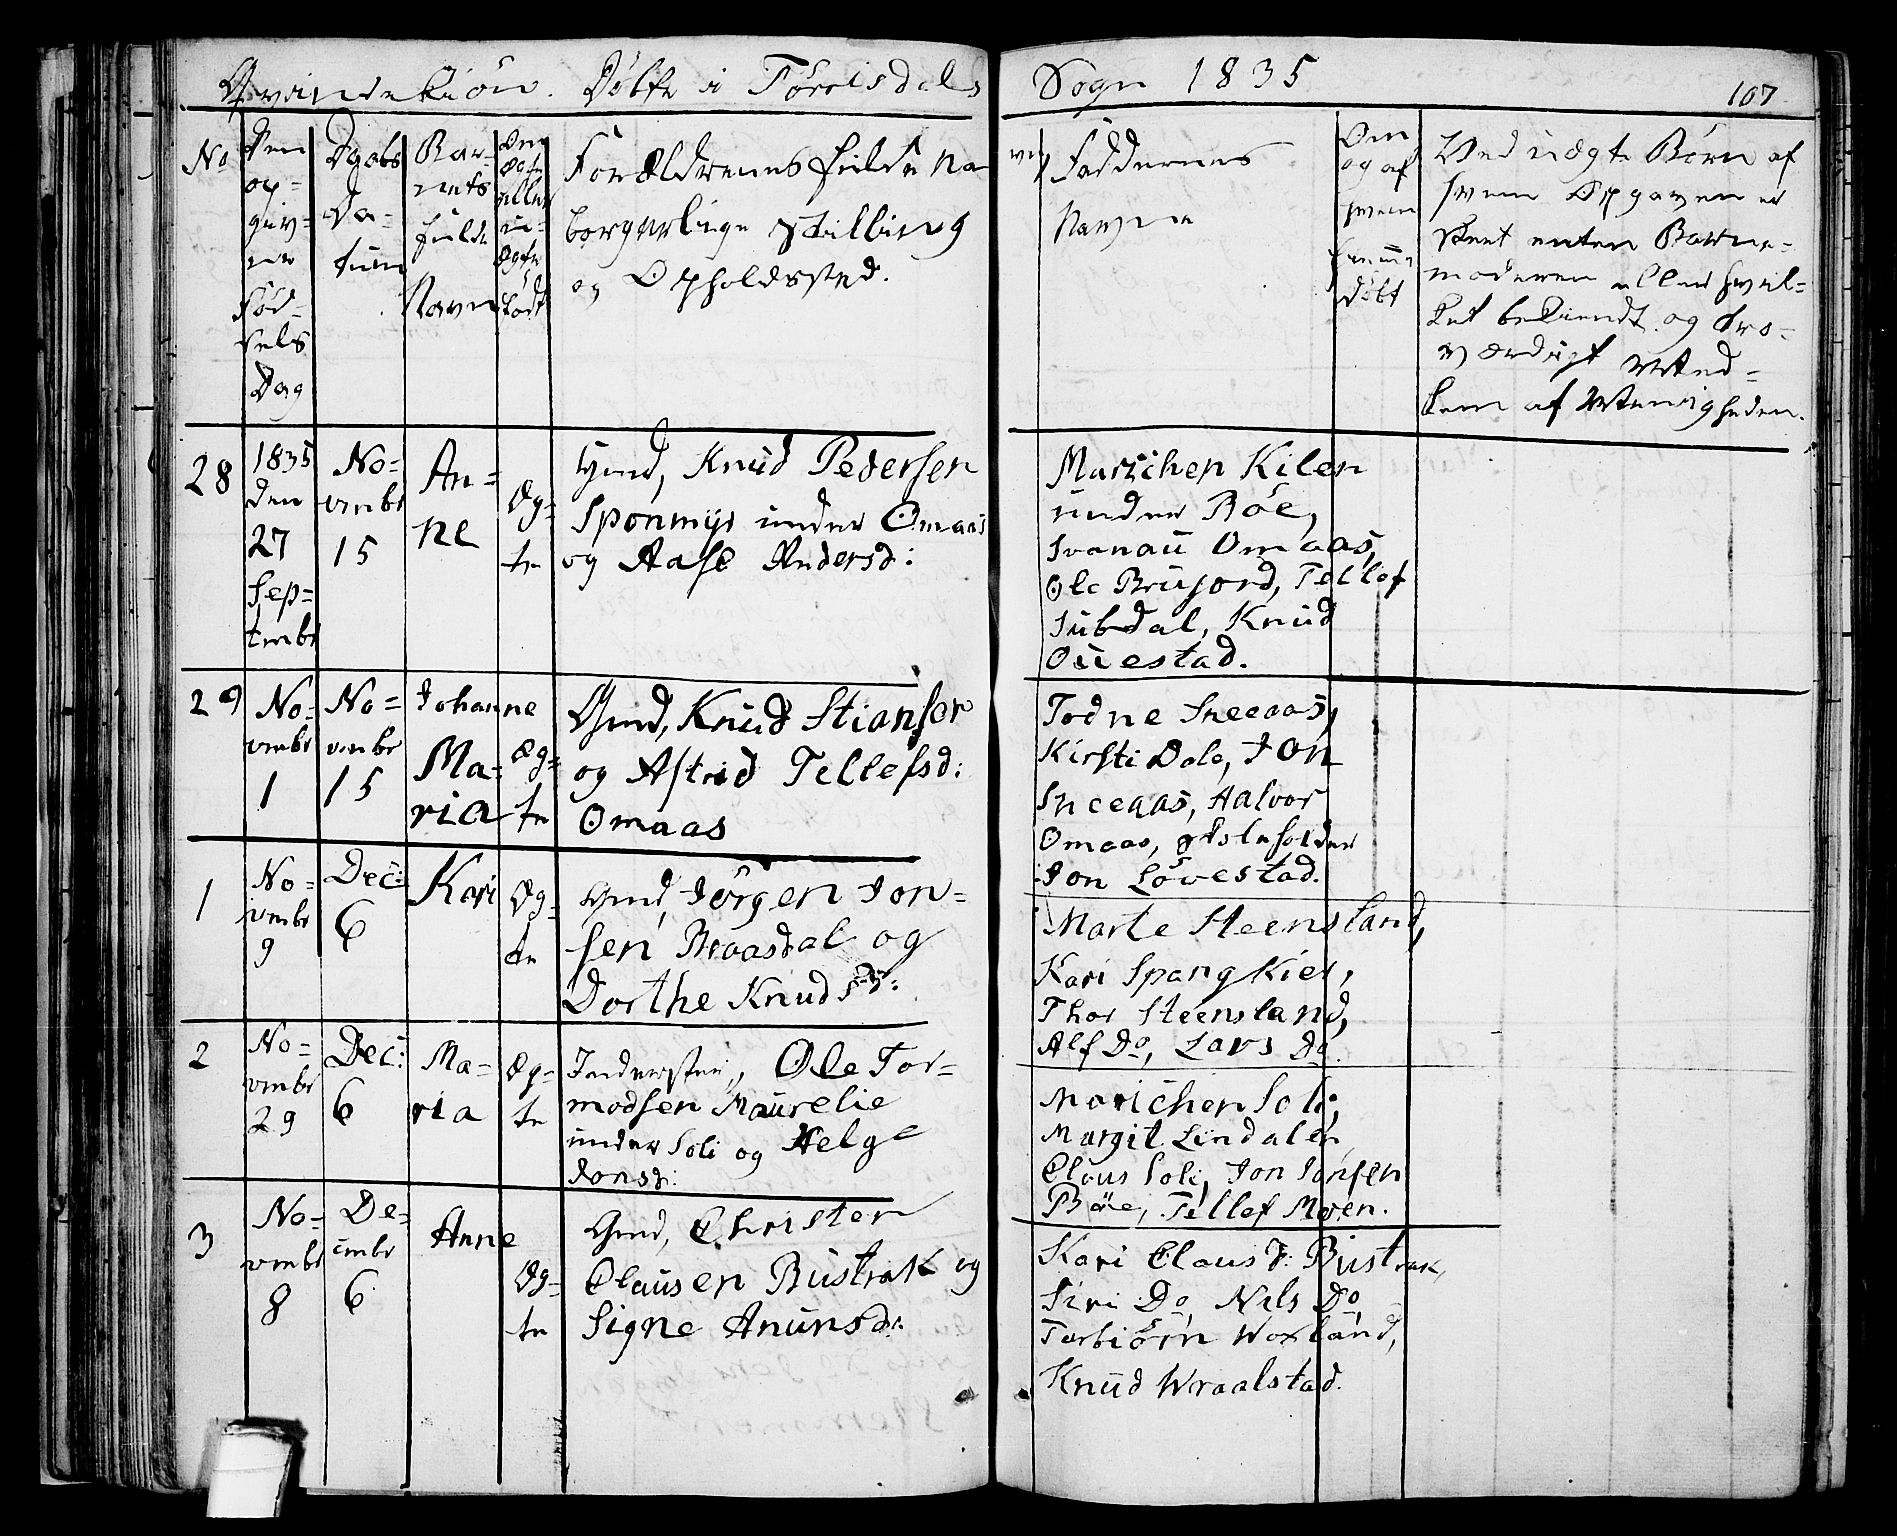 Qvindekiön. Döbte i Törrisdals Sogn 1835
107
No
Den op- givne Föd- sels Dag
Daabs Da- tum
Bar- nets fulde Navn
Om Ægte eller u- Ægte födt
Forældrenes fulde Navn
borgerlige Stilling
og Opholdssted.
Faddernes
Navne
Om og af hvem döbt
Ved uægte Börn af
hvem Opgaven er
skeet enten Barne-
moderen eller hvil-
ket bekiendt og tro-
værdigt
28
1835 den 27 Sep= tmbr
No= vmbr 15
An= ne
Æg= te
Gmd, Knud Pedersen
Sponmyr under Omaas
og Aase Andersd:
Marichen Kilen
under Böe,
Svanau Omaas,
Ole Brujord, Tellef
Subdal, Knud
Ouestad.
29
No= vmbr 1
No= vmbr 15
Johanne Ma= ria
Æg= te
Gmd, Knud Stiansen
og Astrid Tellefsd:
Omaas
Todne Sneeaas,
Kirsti Dale, Jon
Sneeaas, Aalvor
Omaas,
Jon Lövestad.
1
No= vmbr 9
Dec: 6
Kari
Æg= te
Gmd, Jörgen Jon=
sen Braasdal og
Dorthe Knudsd:
Marte Steensland,
Kari Spangkier,
Thor Steensland,
Alf Do, Lars Do.
2
No= vmbr 29
Dec: 6
Ma= ria
Æg= te
Inderster, Ole Tor=
modsen Maurelie
under Soli og Helge
Jonsd:
Marichen Soli,
Margit Lindalen
Claus Soli, Jon Jonsen
Böe, Tellef Moen.
3
No= vmbr 8
De= cmbr 6
Anne
Æg= te
Gmd, Christen
Clausen Bustrak og
Signe Anunsd:
Kari Clausd: Bustrak,
Siri Do, Nils Do,
Torbiörn Woxland,
Knud Wraalstad.